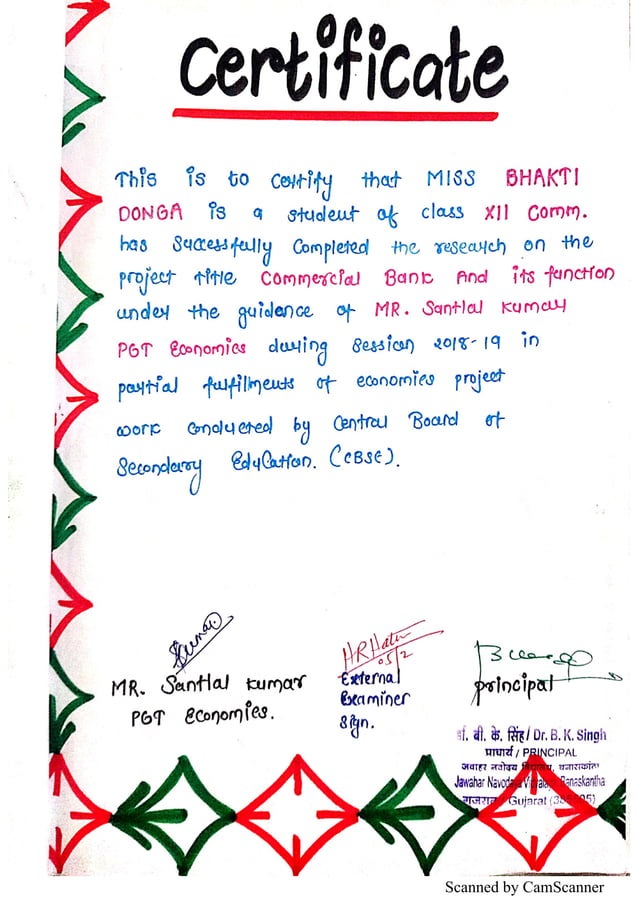 Certificate
This is to certify that MISS BHAKTI
DONGA is a student of class XII Comm.
has Successfully Completed the research on the
project title Commercial Bank And its function
under the guidance of MR. Santlal Kumar
PGT Economics during Session 2018-19 in
partial fulfilments of economics project
work Conducted by Central Board of
Secondary Education. (CBSE).
Kumar
05/2
MR. Santlal Kumar
PGT Economics.
External
Examiner
Sign.
principal
डॉ. बी. के. सिंह / Dr. B. K. Singh
प्राचार्य / PRINCIPAL
जवाहर नवोदय विद्यालय, बनासकांठा
Jawahar Navodaya Vidyalaya Banaskantha
गुजरात Gujarat
Scanned by CamScanner